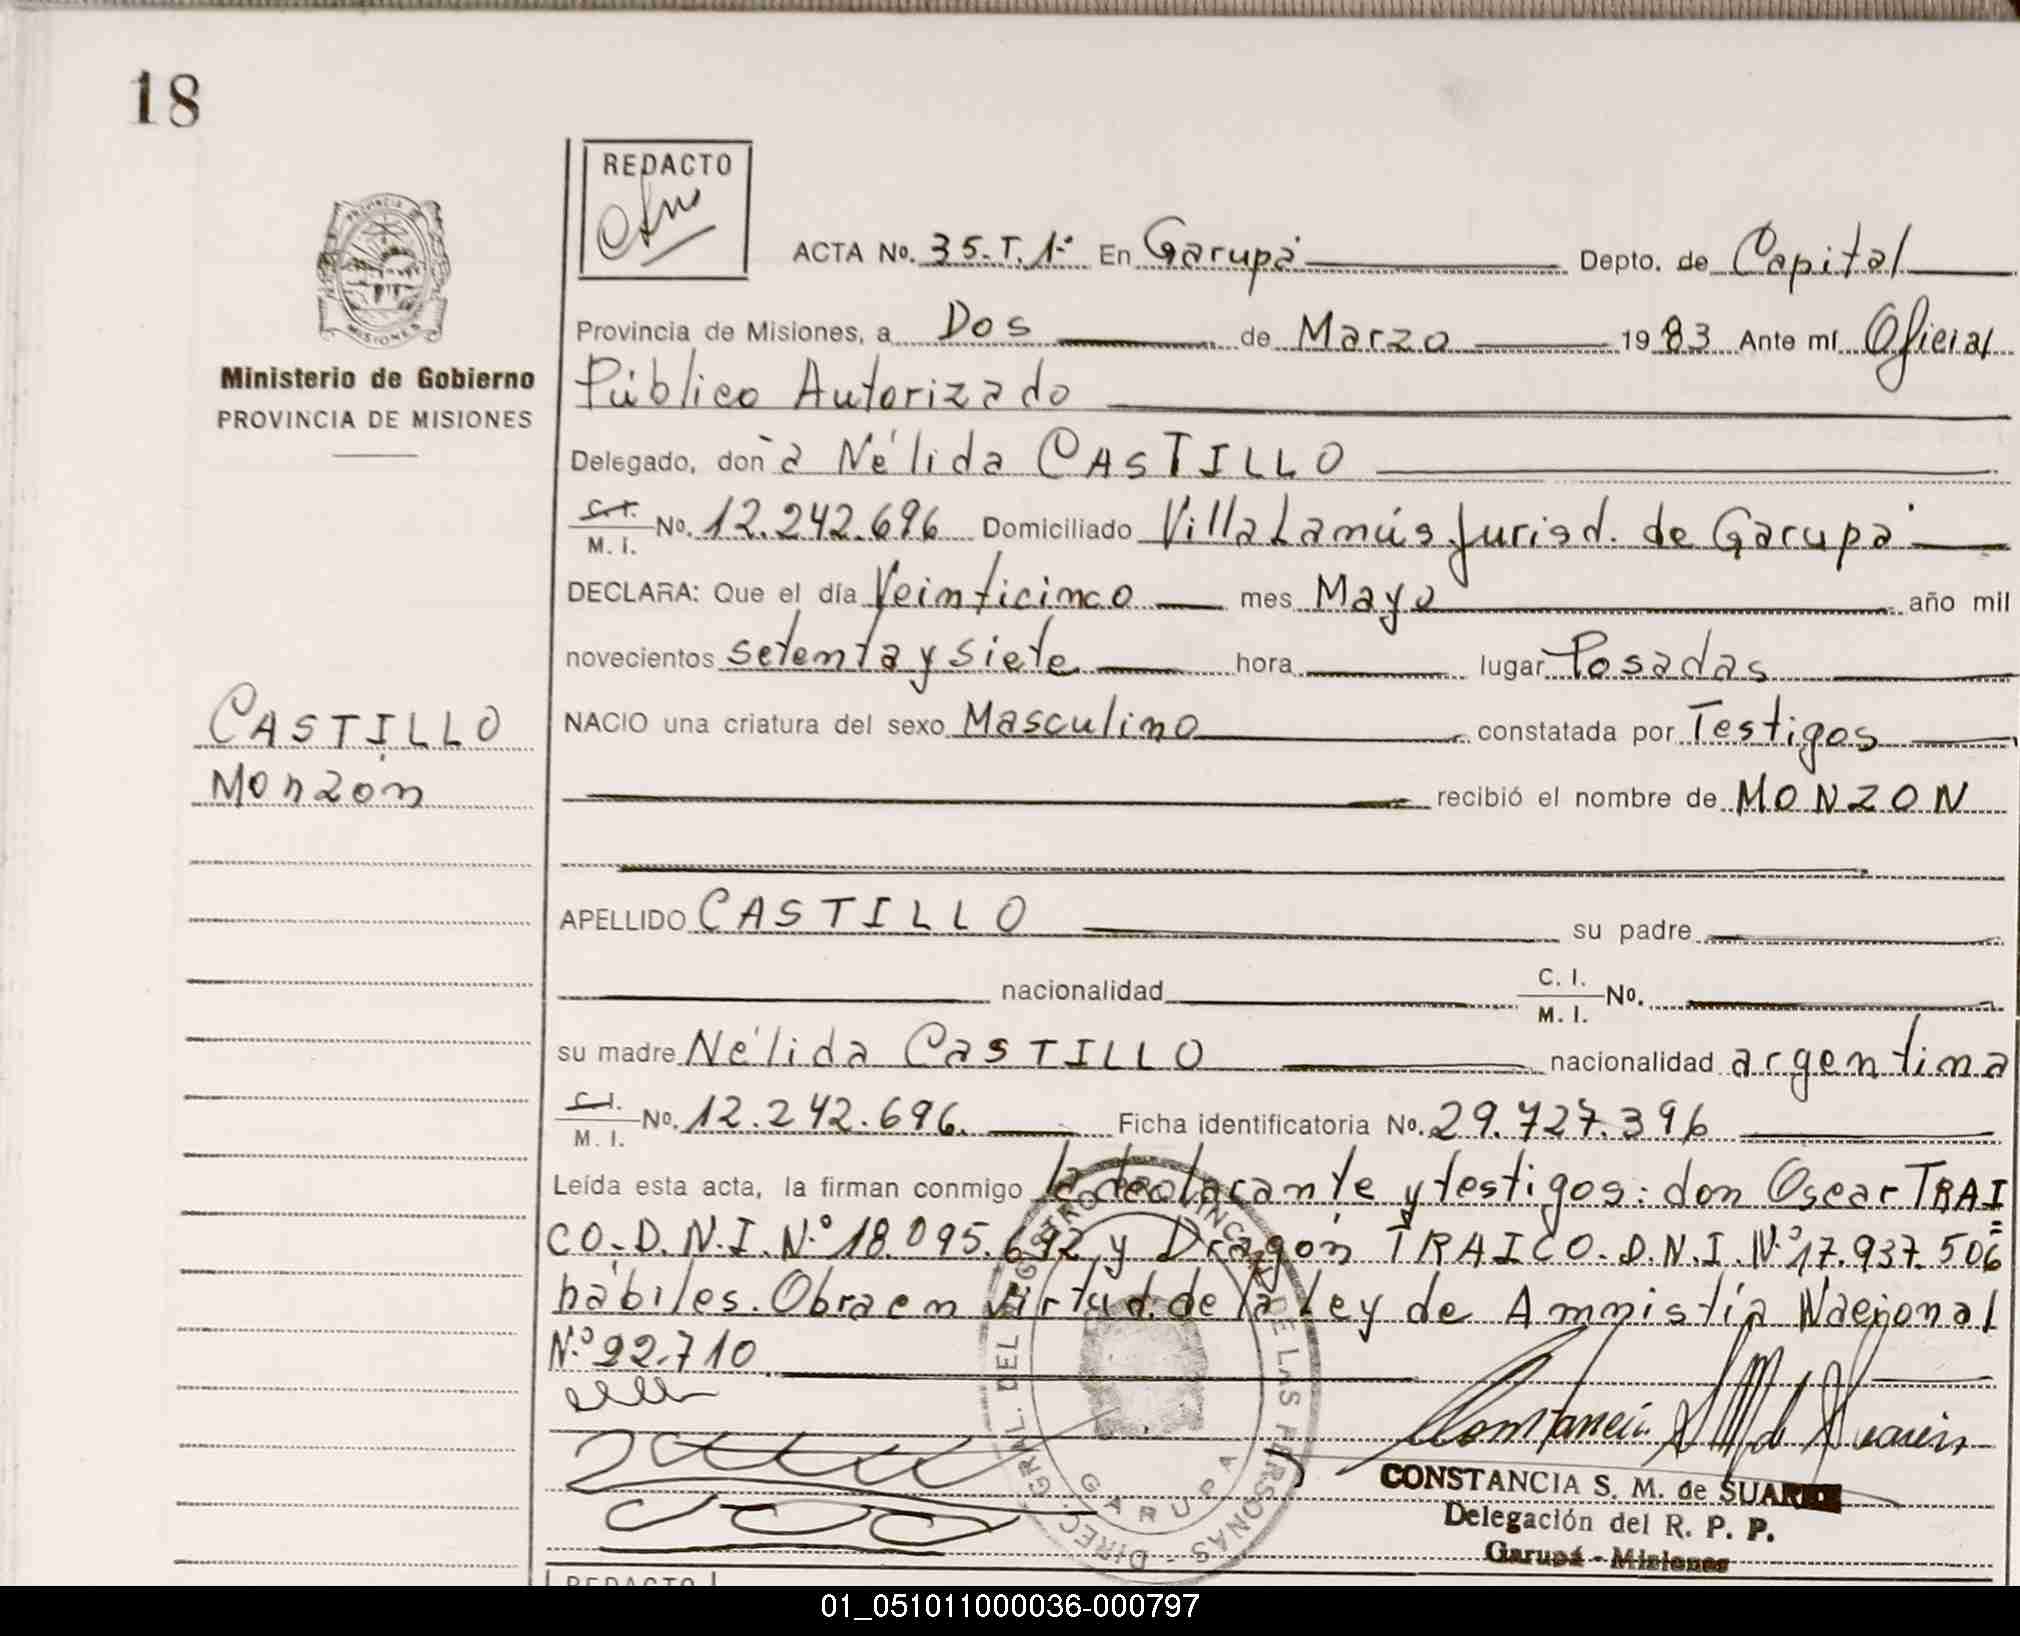 18
REDACTO
PROVINCIA DE
MISIONES
Ministerio de Gobierno
PROVINCIA DE MISIONES
ACTA No. 35.T.1º En Garupá Depto. de Capital
Provincia de Misiones, a Dos de Marzo 1983 Ante mí Oficial
Público Autorizado
Delegado, doña Nélida CASTILLO
C.I. / M. I. No. 12.242.696 Domiciliado Villa Lanús Jurisd. de Garupá
DECLARA: Que el día Veinticinco mes Mayo año mil
novecientos setenta y siete hora lugar Posadas
CASTILLO
Monzón
NACIO una criatura del sexo Masculino constatada por Testigos
recibió el nombre de MONZON
APELLIDO CASTILLO su padre
nacionalidad C. I. / M. I. No.
su madre Nélida CASTILLO nacionalidad argentina
C.I. / M. I. No. 12.242.696. Ficha identificatoria No. 29.727.396
Leída esta acta, la firman conmigo la declarante y testigos: don Oscar TRAI
CO. D.N.I. Nº 18.095.692 y Dragón TRAICO. D.N.I. Nº 17.937.506
hábiles. Obra en virtud de la Ley de Amnistía Nacional
Nº 22.710
DIREC. GRAL. DEL REGISTRO PROVINCIAL DE LAS PERSONAS
GARUPA
CONSTANCIA S. M. de SUAREZ
Delegación del R. P. P.
Garupá - Misiones
REDACTO
01_051011000036-000797